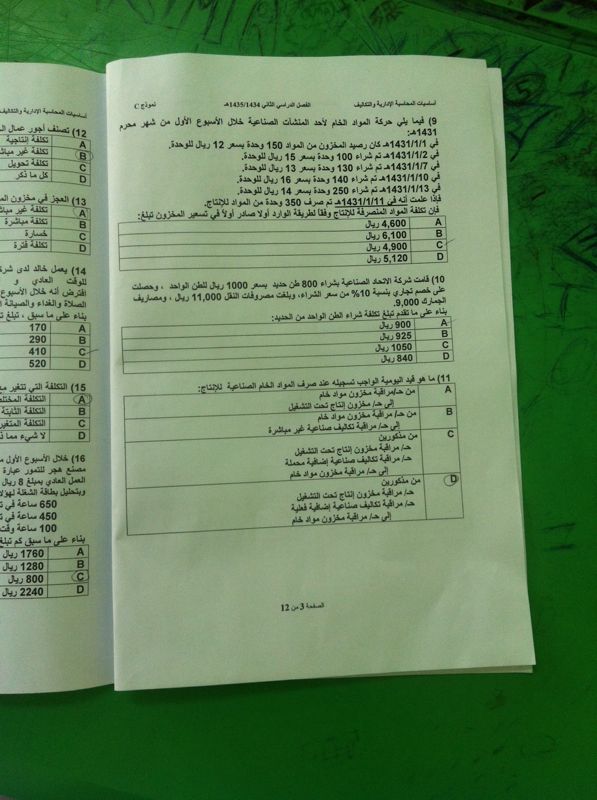 أساسيات المحاسبة الإدارية والتكاليف الفصل الدراسي الثاني 1435/1434هـ نموذج C
9) فيما يلي حركة المواد الخام لأحد المنشآت الصناعية خلال الأسبوع الأول من شهر محرم
1431هـ:
في 1431/1/1هـ كان رصيد المخزون من المواد 150 وحدة بسعر 12 ريال للوحدة.
في 1431/1/2هـ تم شراء 100 وحدة بسعر 15 ريال للوحدة.
في 1431/1/7هـ تم شراء 130 وحدة بسعر 13 ريال للوحدة.
في 1431/1/10هـ تم شراء 140 وحدة بسعر 16 ريال للوحدة.
في 1431/1/13هـ تم شراء 250 وحدة بسعر 14 ريال للوحدة.
فإذا علمت أنه في 1431/1/11هـ تم صرف 350 وحدة من المواد للإنتاج.
فإن تكلفة المواد المنصرفة للإنتاج وفقاً لطريقة الوارد أولا صادر أولاً في تسعير المخزون تبلغ:
A 4,600 ريال
B 6,100 ريال
C 4,900 ريال
D 5,120 ريال
10) قامت شركة الاتحاد الصناعية بشراء 800 طن حديد بسعر 1000 ريال للطن الواحد ، وحصلت
على خصم تجاري بنسبة 10% من سعر الشراء، وبلغت مصروفات النقل 11,000 ريال ، ومصاريف
الجمارك 9,000.
بناء على ما تقدم تبلغ تكلفة شراء الطن الواحد من الحديد:
A 900 ريال
B 925 ريال
C 1050 ريال
D 840 ريال
11) ما هو قيد اليومية الواجب تسجيله عند صرف المواد الخام الصناعية للإنتاج:
A من حـ/مراقبة مخزون مواد خام
إلى حـ/ مخزون إنتاج تحت التشغيل
B من حـ/ مراقبة مخزون مواد خام
إلى حـ/ مراقبة تكاليف صناعية غير مباشرة
C من مذكورين
حـ/ مراقبة مخزون إنتاج تحت التشغيل
حـ/ مراقبة تكاليف صناعية إضافية محملة
إلى حـ/ مراقبة مخزون مواد خام
D من مذكورين
حـ/ مراقبة مخزون إنتاج تحت التشغيل
حـ/ مراقبة تكاليف صناعية إضافية فعلية
إلى حـ/ مراقبة مخزون مواد خام
الصفحة 3 من 12
أساسيات المحاسبة الإدارية والتكاليف
12) تصنف أجور عمال
A تكلفة إنتاجية
B تكلفة غير
C تكلفة تحويل
D كل ما ذكر
13) العجز في مخزون
A تكلفة غير
B تكلفة مباشرة
C خسارة
D تكلفة فترة
14) يعمل خالد لدى
للوقت العادي و
افترض أنه خلال الأسبوع
الصلاة والغداء والصيانة
بناء على ما سبق ، تبلغ
A 170
B 290
C 410
D 520
15) التكلفة التي تتغير
A التكلفة
B التكلفة الثابتة
C التكلفة
D لا شيء مما
16) خلال الأسبوع الأول
مصنع هجر للتمور عبارة
العمل العادي بمبلغ 8 ريال
وبتحليل بطاقة الشغلة
650 ساعة في
450 ساعة في
100 ساعة
بناء على ما سبق كم تبلغ
A 1760 ريال
B 1280 ريال
C 800 ريال
D 2240 ريال